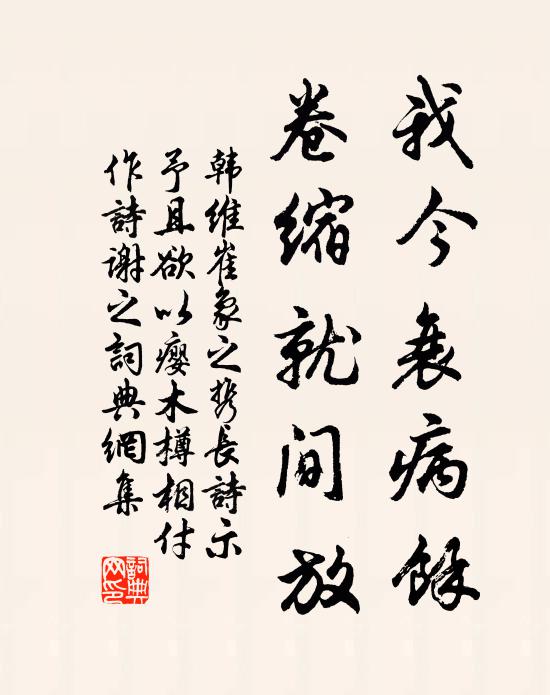 我今衰病馀
卷缩就间放
韩维崔象之携長詩示
予且欲以瘿木樽相付
作詩谢之詞典網集
詞典网印